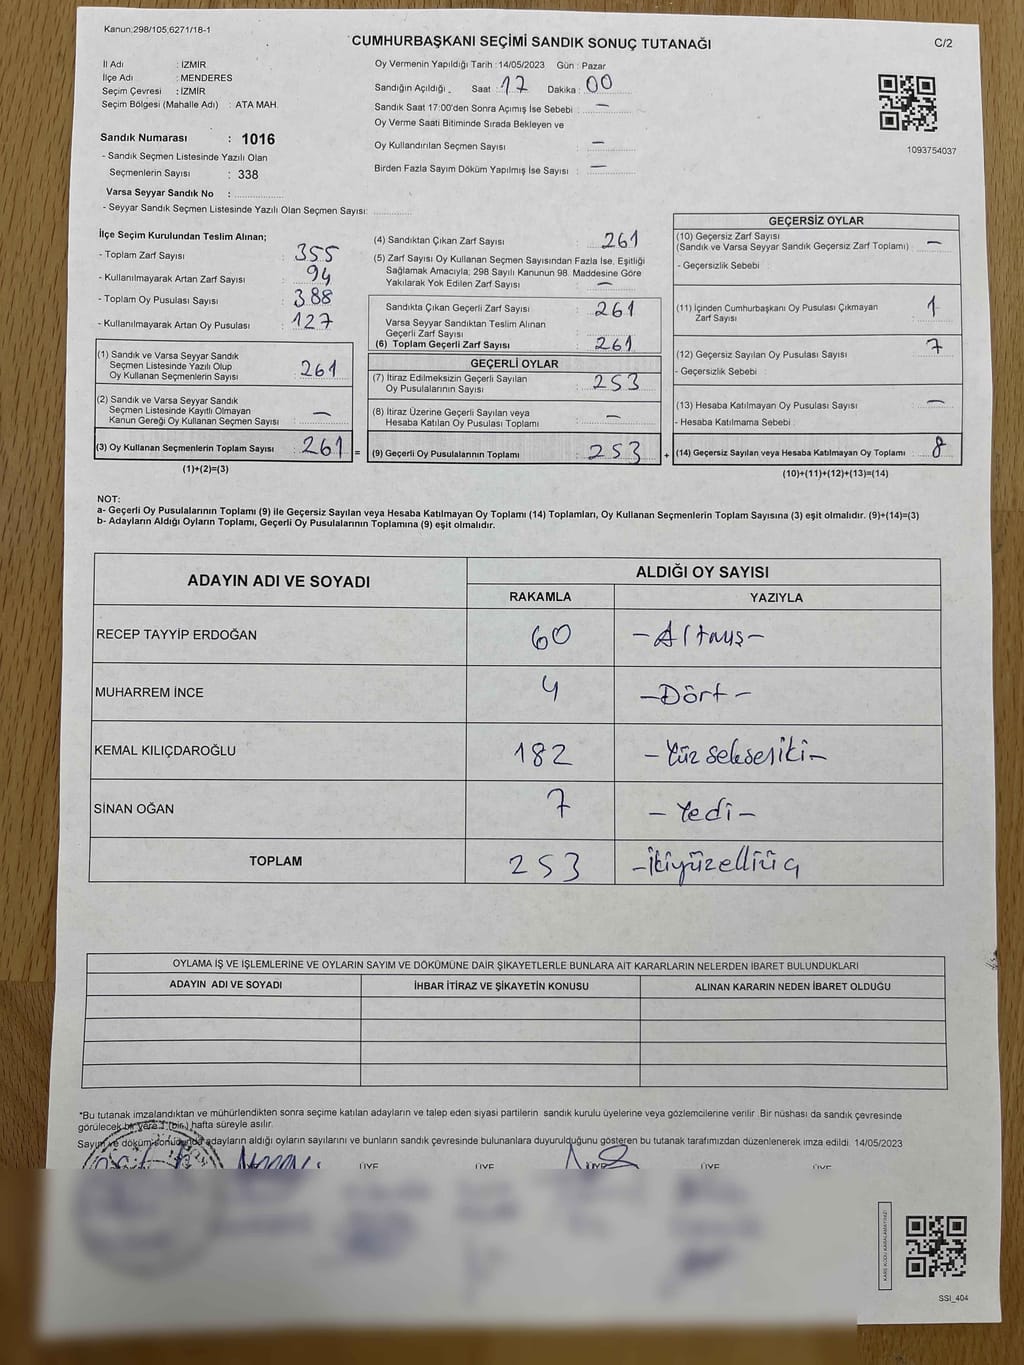 Kanun;298/105,6271/18-1
CUMHURBAŞKANI SEÇİMİ SANDIK SONUÇ TUTANAĞI
C/2
İl Adı : İZMİR
İlçe Adı : MENDERES
Seçim Çevresi : İZMİR
Seçim Bölgesi (Mahalle Adı) : ATA MAH.
Oy Vermenin Yapıldığı Tarih : 14/05/2023 Gün : Pazar
Sandığın Açıldığı . Saat : 17 Dakika : 00
Sandık Saat 17:00'den Sonra Açımış İse Sebebi : —
Oy Verme Saati Bitiminde Sırada Bekleyen ve
Oy Kullandırılan Seçmen Sayısı : —
Birden Fazla Sayım Döküm Yapılmış İse Sayısı : —
1093754037
Sandık Numarası : 1016
- Sandık Seçmen Listesinde Yazılı Olan
Seçmenlerin Sayısı : 338
Varsa Seyyar Sandık No :
- Seyyar Sandık Seçmen Listesinde Yazılı Olan Seçmen Sayısı:
İlçe Seçim Kurulundan Teslim Alınan;
- Toplam Zarf Sayısı : 355
- Kullanılmayarak Artan Zarf Sayısı : 94
- Toplam Oy Pusulası Sayısı : 388
- Kullanılmayarak Artan Oy Pusulası : 127
(1) Sandık ve Varsa Seyyar Sandık
Seçmen Listesinde Yazılı Olup
Oy Kullanan Seçmenlerin Sayısı : 261
(2) Sandık ve Varsa Seyyar Sandık
Seçmen Listesinde Kayıtlı Olmayan
Kanun Gereği Oy Kullanan Seçmen Sayısı : —
(3) Oy Kullanan Seçmenlerin Toplam Sayısı : 261 =
(1)+(2)=(3)
(4) Sandıktan Çıkan Zarf Sayısı : 261
(5) Zarf Sayısı Oy Kullanan Seçmen Sayısından Fazla İse, Eşitliği
Sağlamak Amacıyla; 298 Sayılı Kanunun 98. Maddesine Göre
Yakılarak Yok Edilen Zarf Sayısı : —
Sandıkta Çıkan Geçerli Zarf Sayısı : 261
Varsa Seyyar Sandıktan Teslim Alınan
Geçerli Zarf Sayısı :
(6) Toplam Geçerli Zarf Sayısı : 261
GEÇERLİ OYLAR
(7) İtiraz Edilmeksizin Geçerli Sayılan
Oy Pusulalarının Sayısı : 253
(8) İtiraz Üzerine Geçerli Sayılan veya
Hesaba Katılan Oy Pusulası Toplamı : —
(9) Geçerli Oy Pusulalarının Toplamı : 253 +
GEÇERSİZ OYLAR
(10) Geçersiz Zarf Sayısı
(Sandık ve Varsa Seyyar Sandık Geçersiz Zarf Toplamı) : —
- Geçersizlik Sebebi :
(11) İçinden Cumhurbaşkanı Oy Pusulası Çıkmayan
Zarf Sayısı : 1
(12) Geçersiz Sayılan Oy Pusulası Sayısı : 7
- Geçersizlik Sebebi :
(13) Hesaba Katılmayan Oy Pusulası Sayısı : —
- Hesaba Katılmama Sebebi :
(14) Geçersiz Sayılan veya Hesaba Katılmayan Oy Toplamı : 8
(10)+(11)+(12)+(13)=(14)
NOT:
a- Geçerli Oy Pusulalarının Toplamı (9) ile Geçersiz Sayılan veya Hesaba Katılmayan Oy Toplamı (14) Toplamları, Oy Kullanan Seçmenlerin Toplam Sayısına (3) eşit olmalıdır. (9)+(14)=(3)
b- Adayların Aldığı Oyların Toplamı, Geçerli Oy Pusulalarının Toplamına (9) eşit olmalıdır.
ADAYIN ADI VE SOYADI ALDIĞI OY SAYISI
RAKAMLA YAZIYLA
RECEP TAYYİP ERDOĞAN 60 – Altmış –
MUHARREM İNCE 4 – Dört –
KEMAL KILIÇDAROĞLU 182 – Yüz sekseniki –
SİNAN OĞAN 7 – Yedi –
TOPLAM 253 – İkiyüzelliüç
OYLAMA İŞ VE İŞLEMLERİNE VE OYLARIN SAYIM VE DÖKÜMÜNE DAİR ŞİKAYETLERLE BUNLARA AİT KARARLARIN NELERDEN İBARET BULUNDUKLARI
ADAYIN ADI VE SOYADI İHBAR İTİRAZ VE ŞİKAYETİN KONUSU ALINAN KARARIN NEDEN İBARET OLDUĞU
*Bu tutanak imzalandıktan ve mühürlendikten sonra seçime katılan adayların ve talep eden siyasi partilerin sandık kurulu üyelerine veya gözlemcilerine verilir .Bir nüshası da sandık çevresinde
görülecek bir yere 1 (bir) hafta süreyle asılır.
Sayım ve döküm sonucunda adayların aldığı oyların sayılarını ve bunların sandık çevresinde bulunanlara duyurulduğunu gösteren bu tutanak tarafımızdan düzenlenerek imza edildi. 14/05/2023
ÜYE ÜYE ÜYE ÜYE ÜYE
KARE KODU KARALAMAYINIZ!
SSI_404